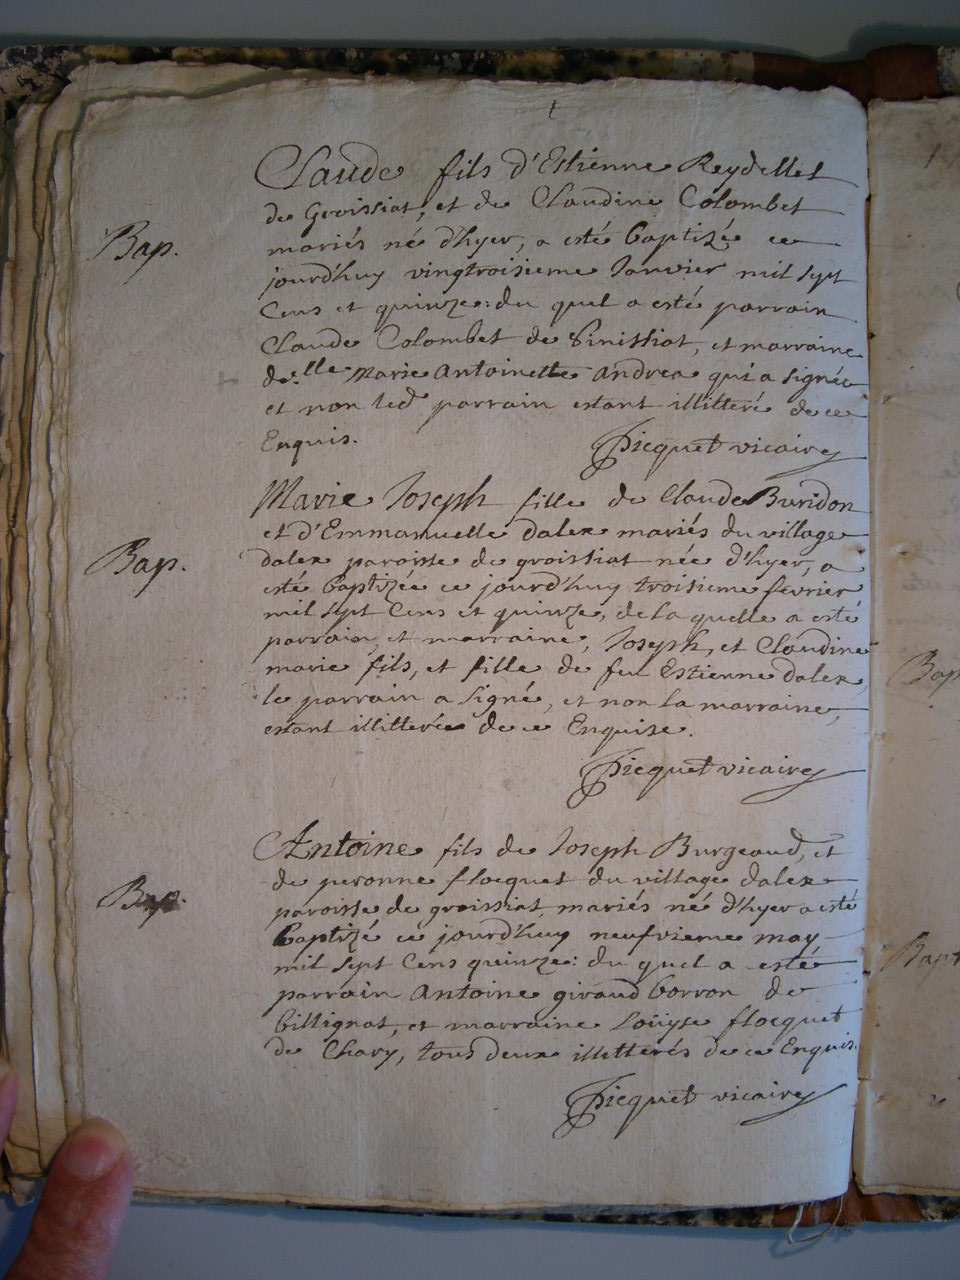 Claude fils d'Estienne Reydellet
de Groissiat, et de Claudine Colombet
Bap.
mariés né d'hyer, a esté baptizé ce
jourd'huy vingtroisieme Janvier mil sept
Cens et quinze: du quel a esté parrain
Claude Colombet de Sinissiat, et marraine
de.lle Marie Antoinette Andrea qui a signée
et non led parrain estant illitteré de ce
Enquis.
Picquet vicaire
Marie Joseph fille de Claude Buridon
et d'Emmanuelle dalex mariés du village
Bap.
dalex paroisse de groissiat née d'hyer, a
esté baptizée ce jourd'huy troisieme fevrier
mil sept Cens et quinze, de la quelle a esté
parrain, et marraine, Joseph, et Claudine
marie fils, et fille de feu Estienne dalex,
le parrain a signé, et non la marraine,
estant illitterée de ce Enquise.
Picquet vicaire
Antoine fils de Joseph Burgeaud, et
de peronne flocquet du village dalex
Bap.
paroisse de groissiat, mariés né d'hyer a esté
baptizé ce jourd'huy neufvieme may
mil sept Cens quinze: du quel a esté
parrain Antoine giraud borron de
billignat, et marraine Loüyse flocquet
de Chary, tous deux illitterés de ce Enquis.
Picquet vicaire
Bap
Bapt